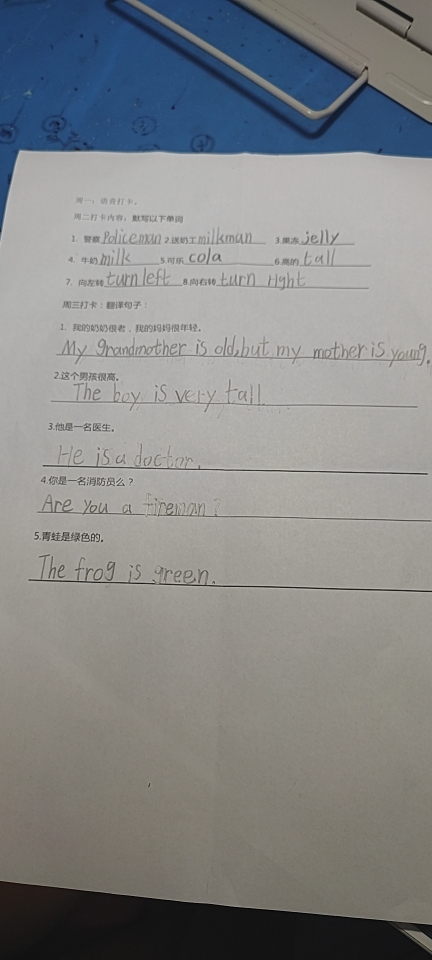 周一：语音打卡。
周二打卡内容：默写以下单词
1. 警察 Policeman 2.送奶工 milkman 3.果冻 jelly
4. 牛奶 milk 5.可乐 cola 6.高的 tall
7. 向左转 turn left 8.向右转 turn right
周三打卡：翻译句子：
1. 我的奶奶很老，我的妈妈很年轻。
My grandmother is old,but my mother is young.
2.这个男孩很高。
The boy is very tall.
3.他是一名医生。
He is a doctor.
4.你是一名消防员么？
Are you a fireman?
5.青蛙是绿色的。
The frog is green.